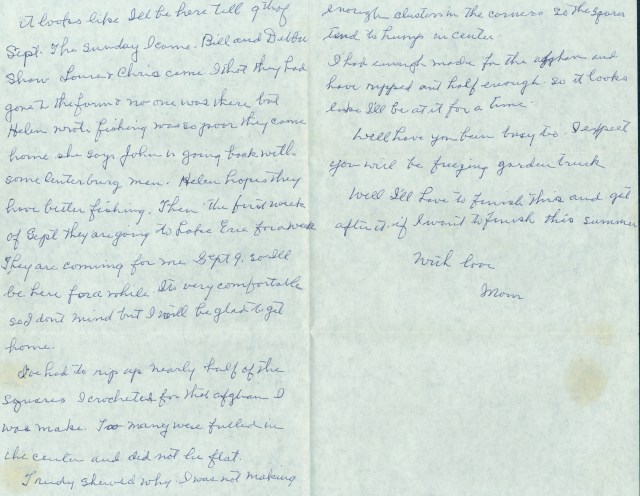 it looks like I'll be here till 9th of
Sept. The Sunday I came. Bill and Debbie
Show Laura & Chris came I that they had
gone to the farm & no one was there but
Helen wrote fishing was so poor they came
home she says John is going back with
some Centerburg men. Helen hopes they
have better fishing. Then the first week
of Sept they are going to Lake Erie for a week
They are coming for me Sept 9. so I'll
be here for a while Its very comfortable
so I don't mind but I will be glad to get
home.
I've had to rip up nearly half of the
squares I crocheted for that afghan I
was make. Too many were fulled in
the center and did not lie flat.
Trudy showed why I was not making
enough clusters in the corners so the squares
tend to hump in center
I had enough made for the afghan and
have ripped out half enough so it looks
like I'll be at it for a time.
Well have you been busy too. I expect
you will be freezing garden truck
Well I'll have to finish this and get
after it if I want to finish this summer
With love
Mom